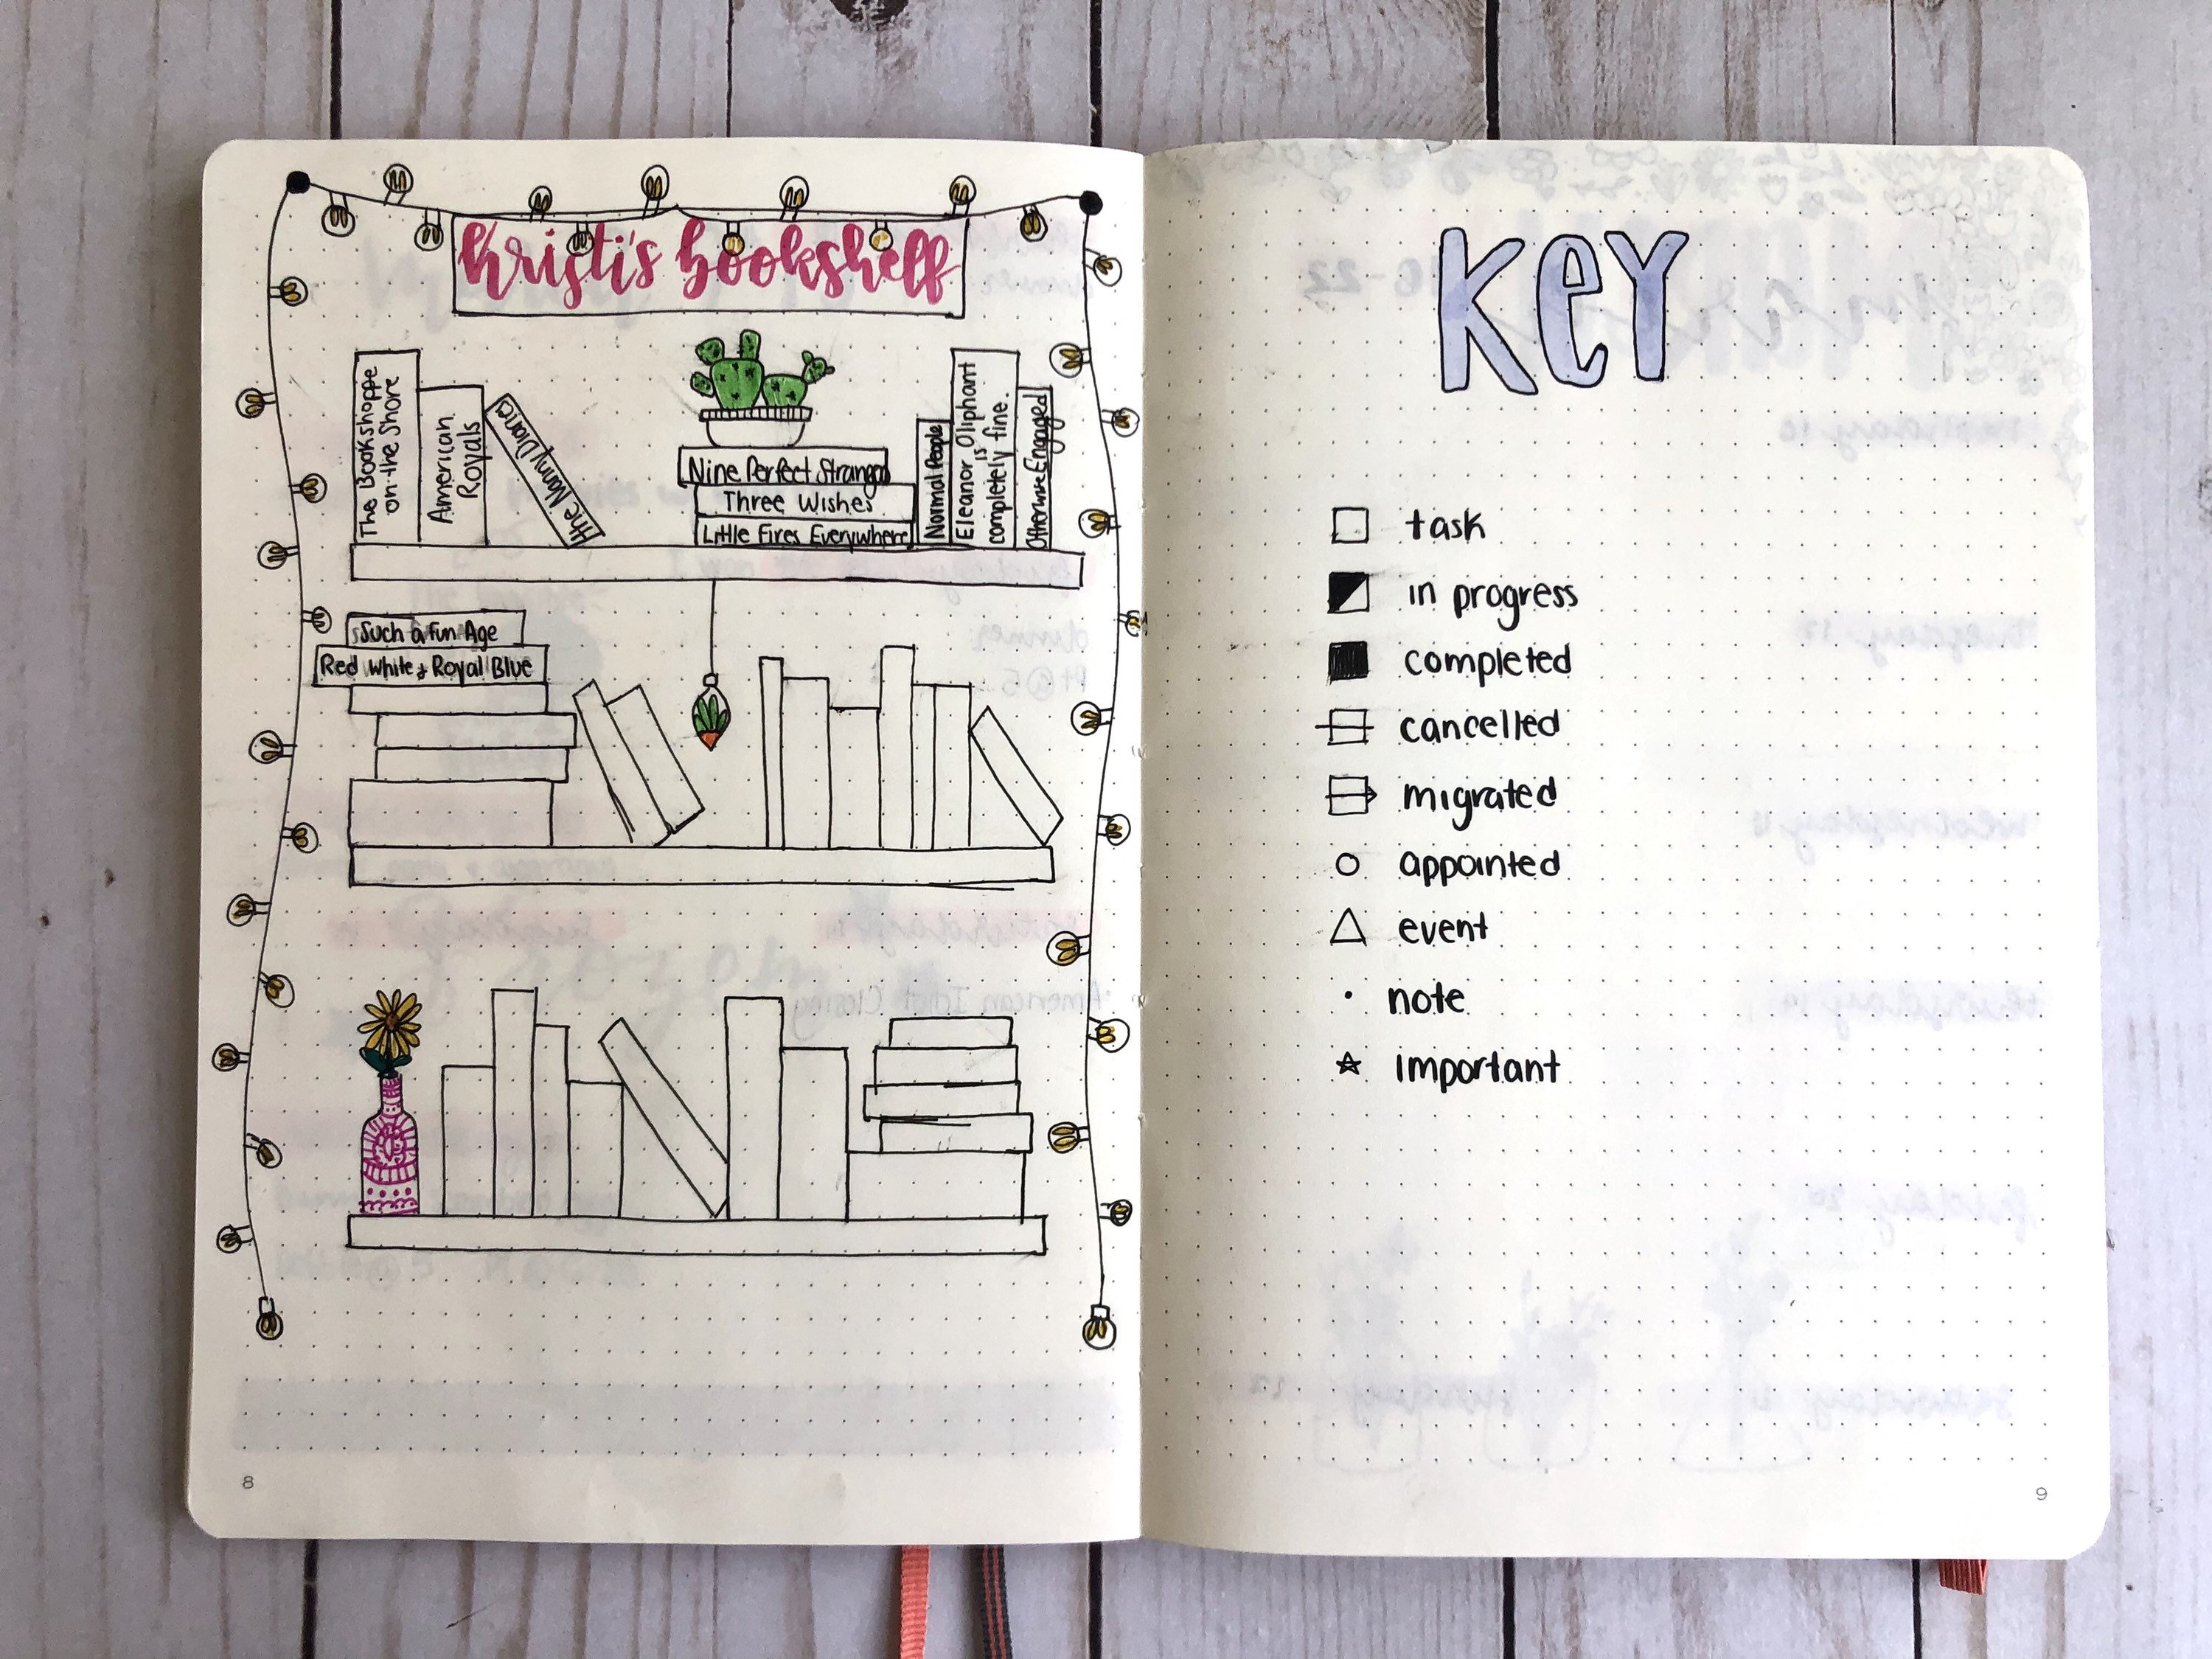 kristi's bookshelf
The Bookshoppe
on the Shore
American
Royals
The Nanny Diaries
Nine Perfect Stranger
Three Wishes
Little Fires Everywhere
Normal People
Eleanor Oliphant
is
completely fine.
Otherwise Engaged
Such a Fun Age
Red White + Royal Blue
8
KEY
task
in progress
completed
cancelled
migrated
appointed
event
note
important
9